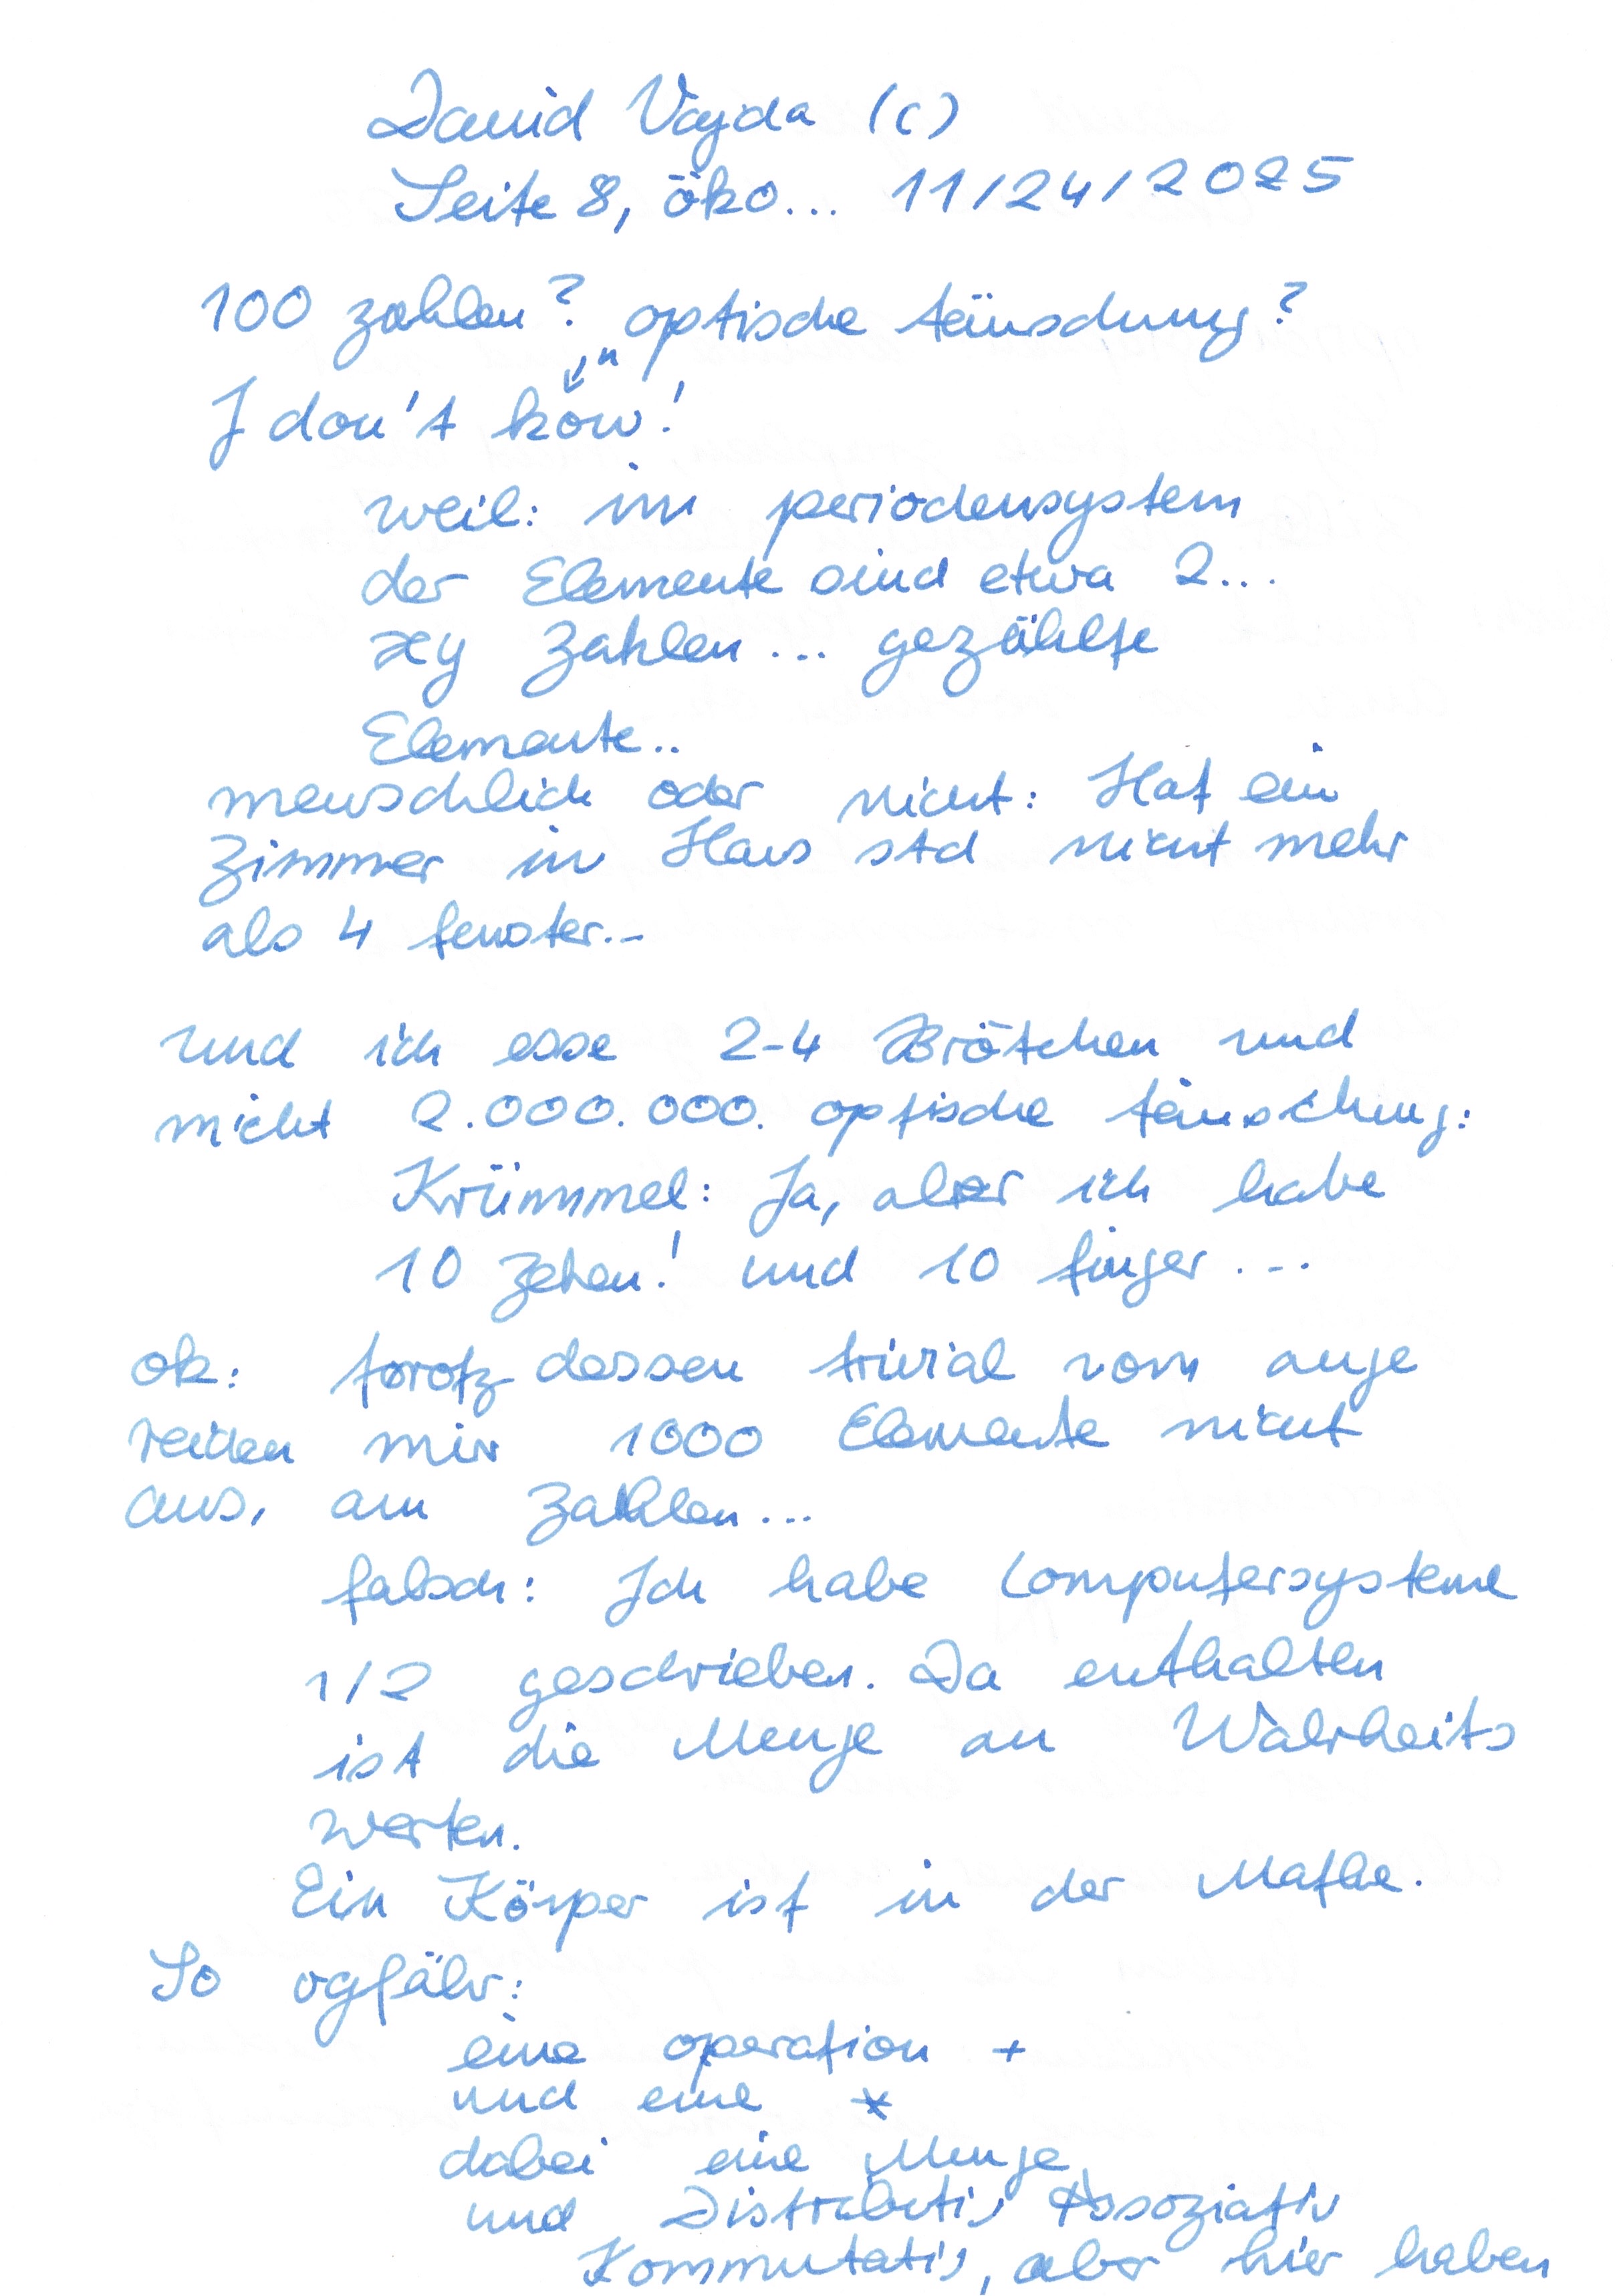 David Vajda (c)
Seite 8, öko... 11/24/2025
100 zahlen? optische täuschung?
n
I don't kow!
weil: im periodensystem
der Elemente sind etwa 2...
xy Zahlen... gezählte
Elemente..
menschlich oder nicht: Hat ein
Zimmer in Haus std nicht mehr
als 4 fenster...
und ich esse 2-4 Brötchen und
nicht 2.000.000. optische täuschung:
Krümmel: Ja, aber ich habe
10 zehen! und 10 finger...
ok: trotz dessen trivial vom auge
reichen mir 1000 Elemente nicht
aus, an Zahlen...
falsch: Ich habe Computersysteme
1/2 geschrieben. Da enthalten
ist die Menge an Wahrheits
werten.
Ein Körper ist in der Mathe.
So ogfähr:
eine operation +
und eine *
dabei eine Menge
und Distributiv, Assoziativ
Kommutativ, aber hier haben